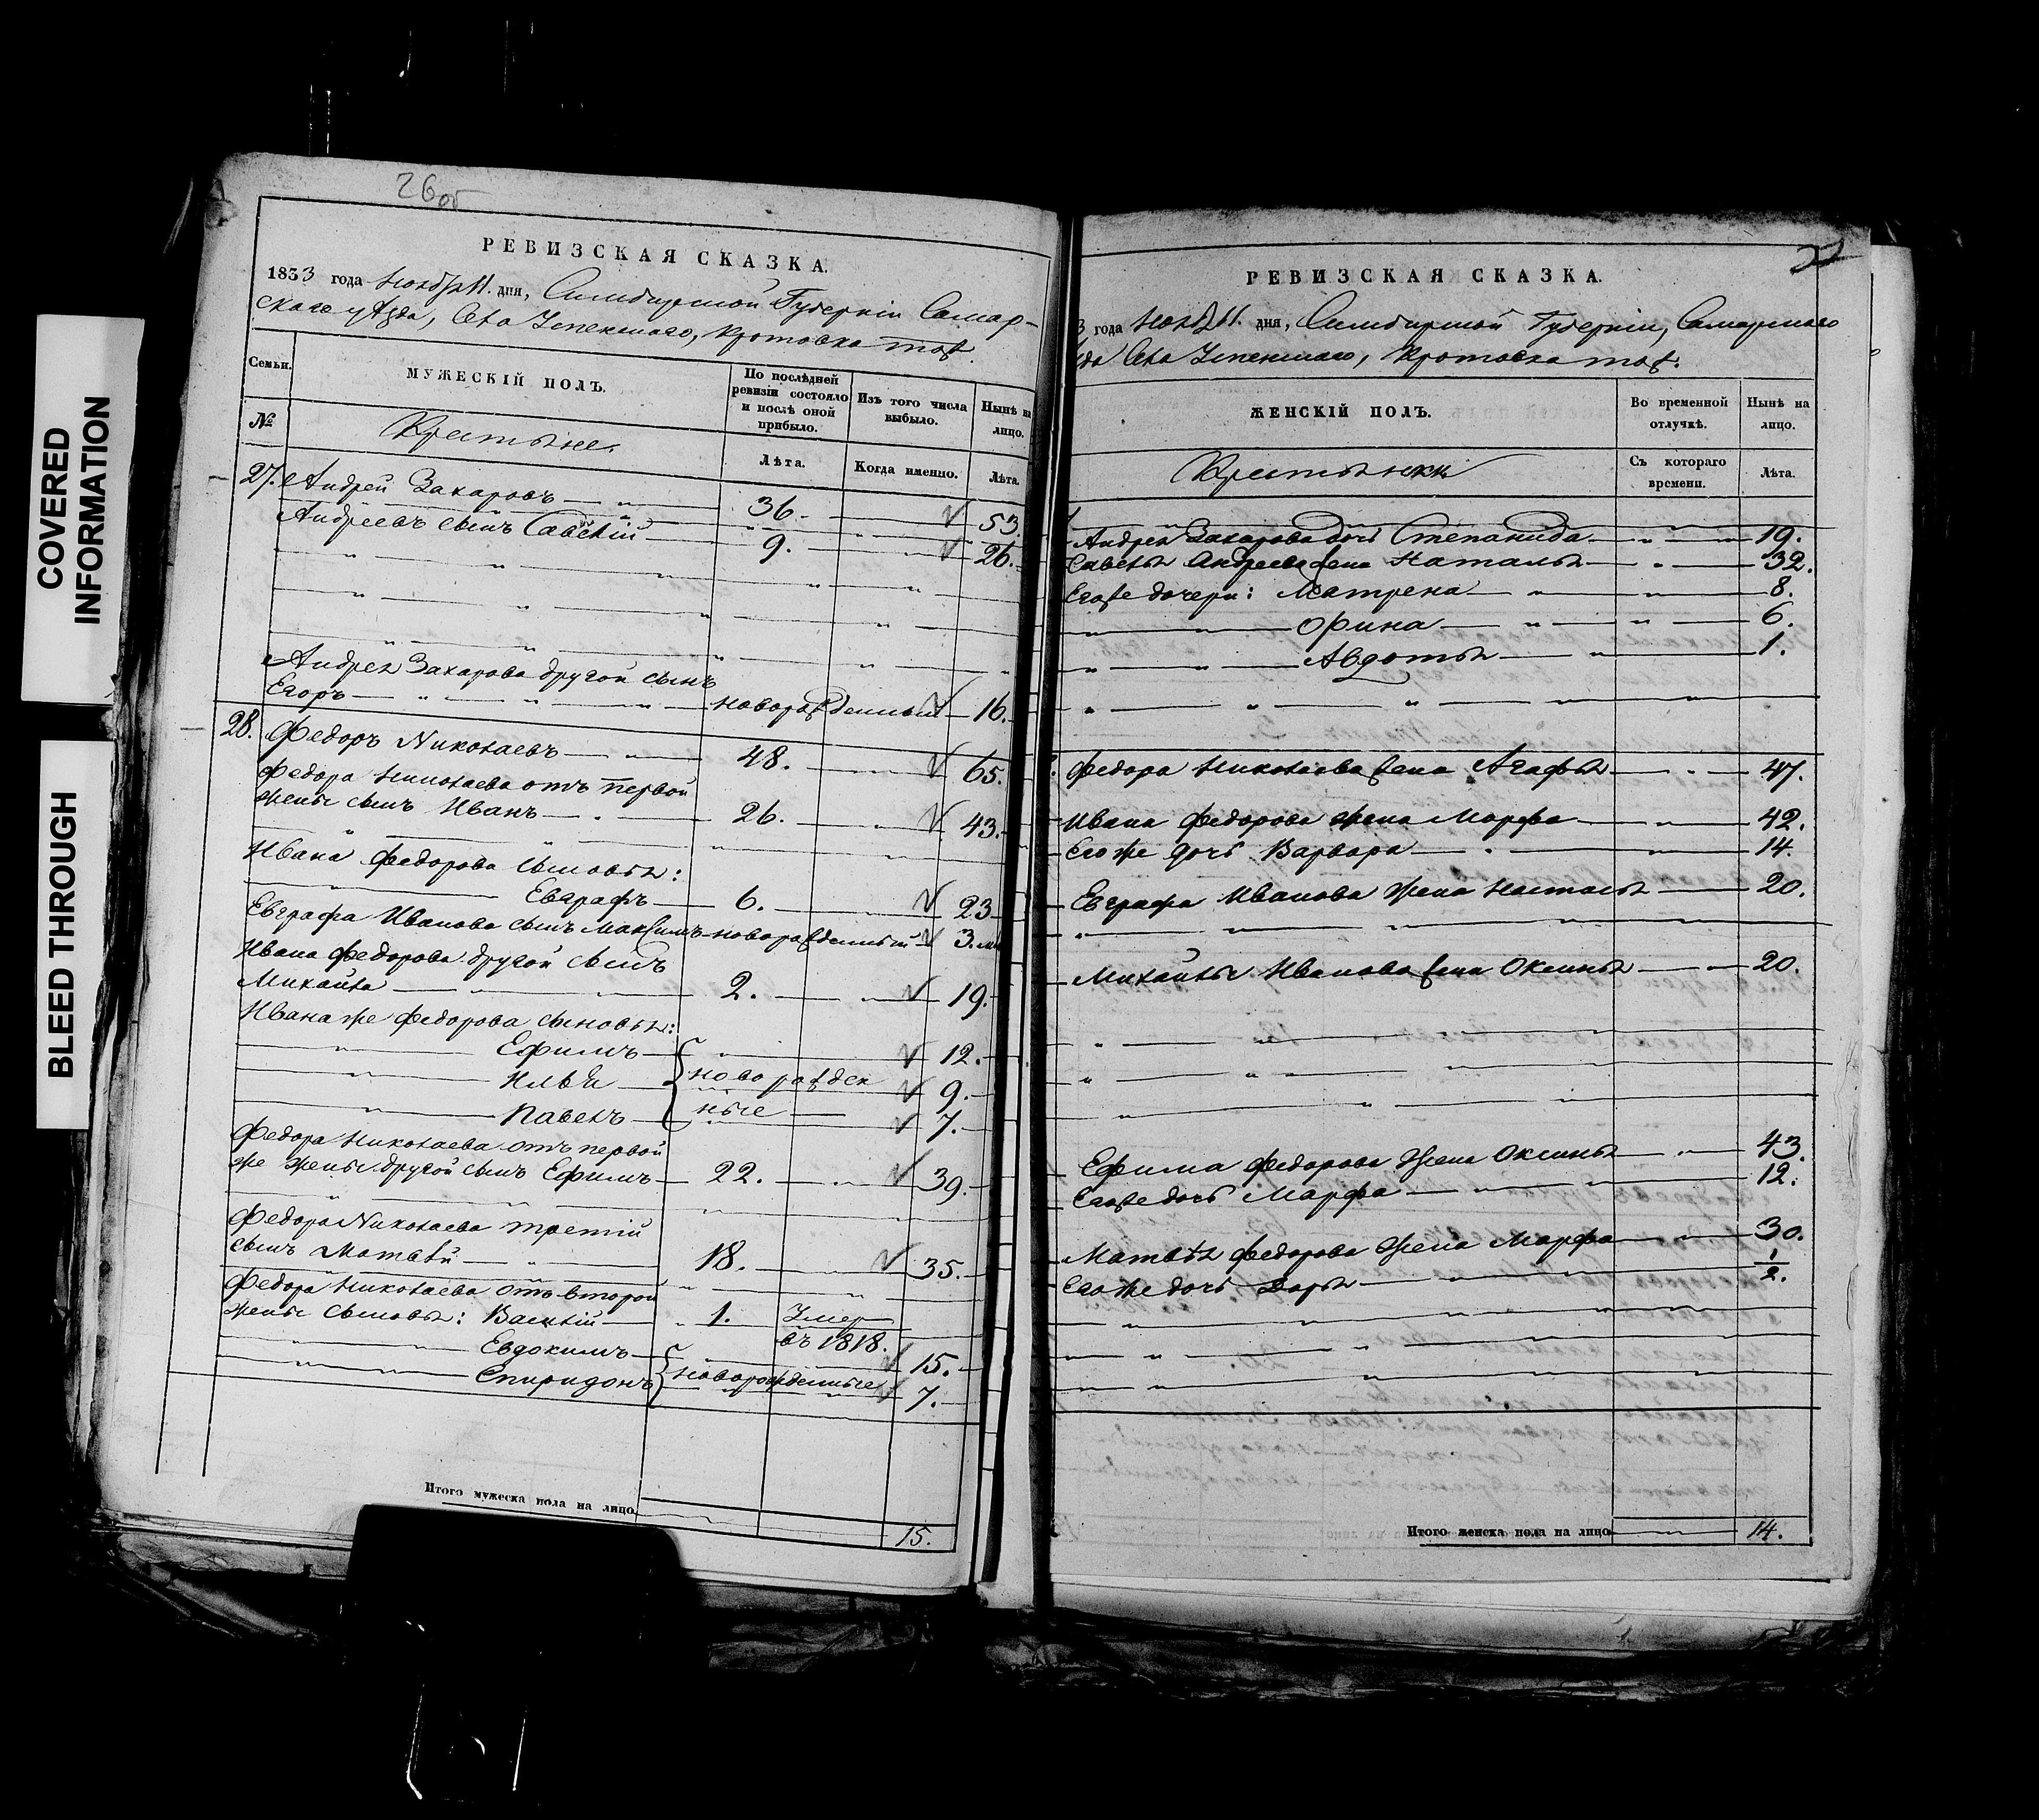 COVERED
INFORMATION
BLEED THROUGH
26об
РЕВИЗСКАЯ СКАЗКА.
1833 года Ноября 11. дня, Симбирской Губернiи Самар-
скаго уѣзда, Села Успенскаго, Кротовка тожъ
Семьи.
МУЖЕСКІЙ ПОЛЪ.
По послѣдней ревизіи состояло и послѣ оной прибыло.
Изъ того числа выбыло.
Нынѣ на лицо.
№
Крестьяне.
Лѣта.
Когда именно.
Лѣта.
27. Андрей Захаровъ 36. 53
Андреевъ сынъ Савелій 9. 26.
Андрея Захарова другой сынъ
Егоръ новорожденный 16.
28. Федоръ Николаевъ 48. 65.
Федора Николаева отъ первой
жены сынъ Иванъ 26. 43.
Ивана Федорова сыновья:
Евграфъ 6. 23
Евграфа Иванова сынъ Максимъ новорожденный 3. м
Ивана Федорова другой сынъ
Михайла 2. 19.
Ивана же Федорова сыновья:
Ефимъ 12.
Илья новорожден 9.
Павелъ ные 7.
Федора Николаева отъ первой
же жены другой сынъ Ефимъ 22. 39.
Федора Николаева третій
сынъ Матвѣй 18. 35.
Федора Николаева отъ второй
жены сыновья: Василій 1. Умеръ
въ 1818.
Евдокимъ 15.
Спиридонъ новорожденные 7.
Итого мужеска пола на лицо
15.
РЕВИЗСКАЯ СКАЗКА.
3 года Ноября 11. дня, Симбирской Губернiи, Самарскаго
да Села Успенскаго, Кротовка тожъ.
ЖЕНСКІЙ ПОЛЪ.
Во временной отлучкѣ.
Нынѣ на лицо.
Крестьянки
Съ котораго времени.
Лѣта.
Андрея Захарова дочь Степанида 19.
Савелья Андреева жена Наталья 32.
Егоже дочери: Матрена 8.
Орина 6.
Авдотья 1.
Федора Николаева жена Агафья 47.
Ивана Федорова жена Марфа 42.
Егоже дочь Варвара 14.
Евграфа Иванова жена Наталья 20.
Михайлы Иванова жена Оксинья 20.
Ефима Федорова жена Оксинья 43.
Егоже дочь Марфа 12.
Матвѣя Федорова жена Марфа 30.
Егоже дочь Дарья 1/2.
Итого женска пола на лицо
14.